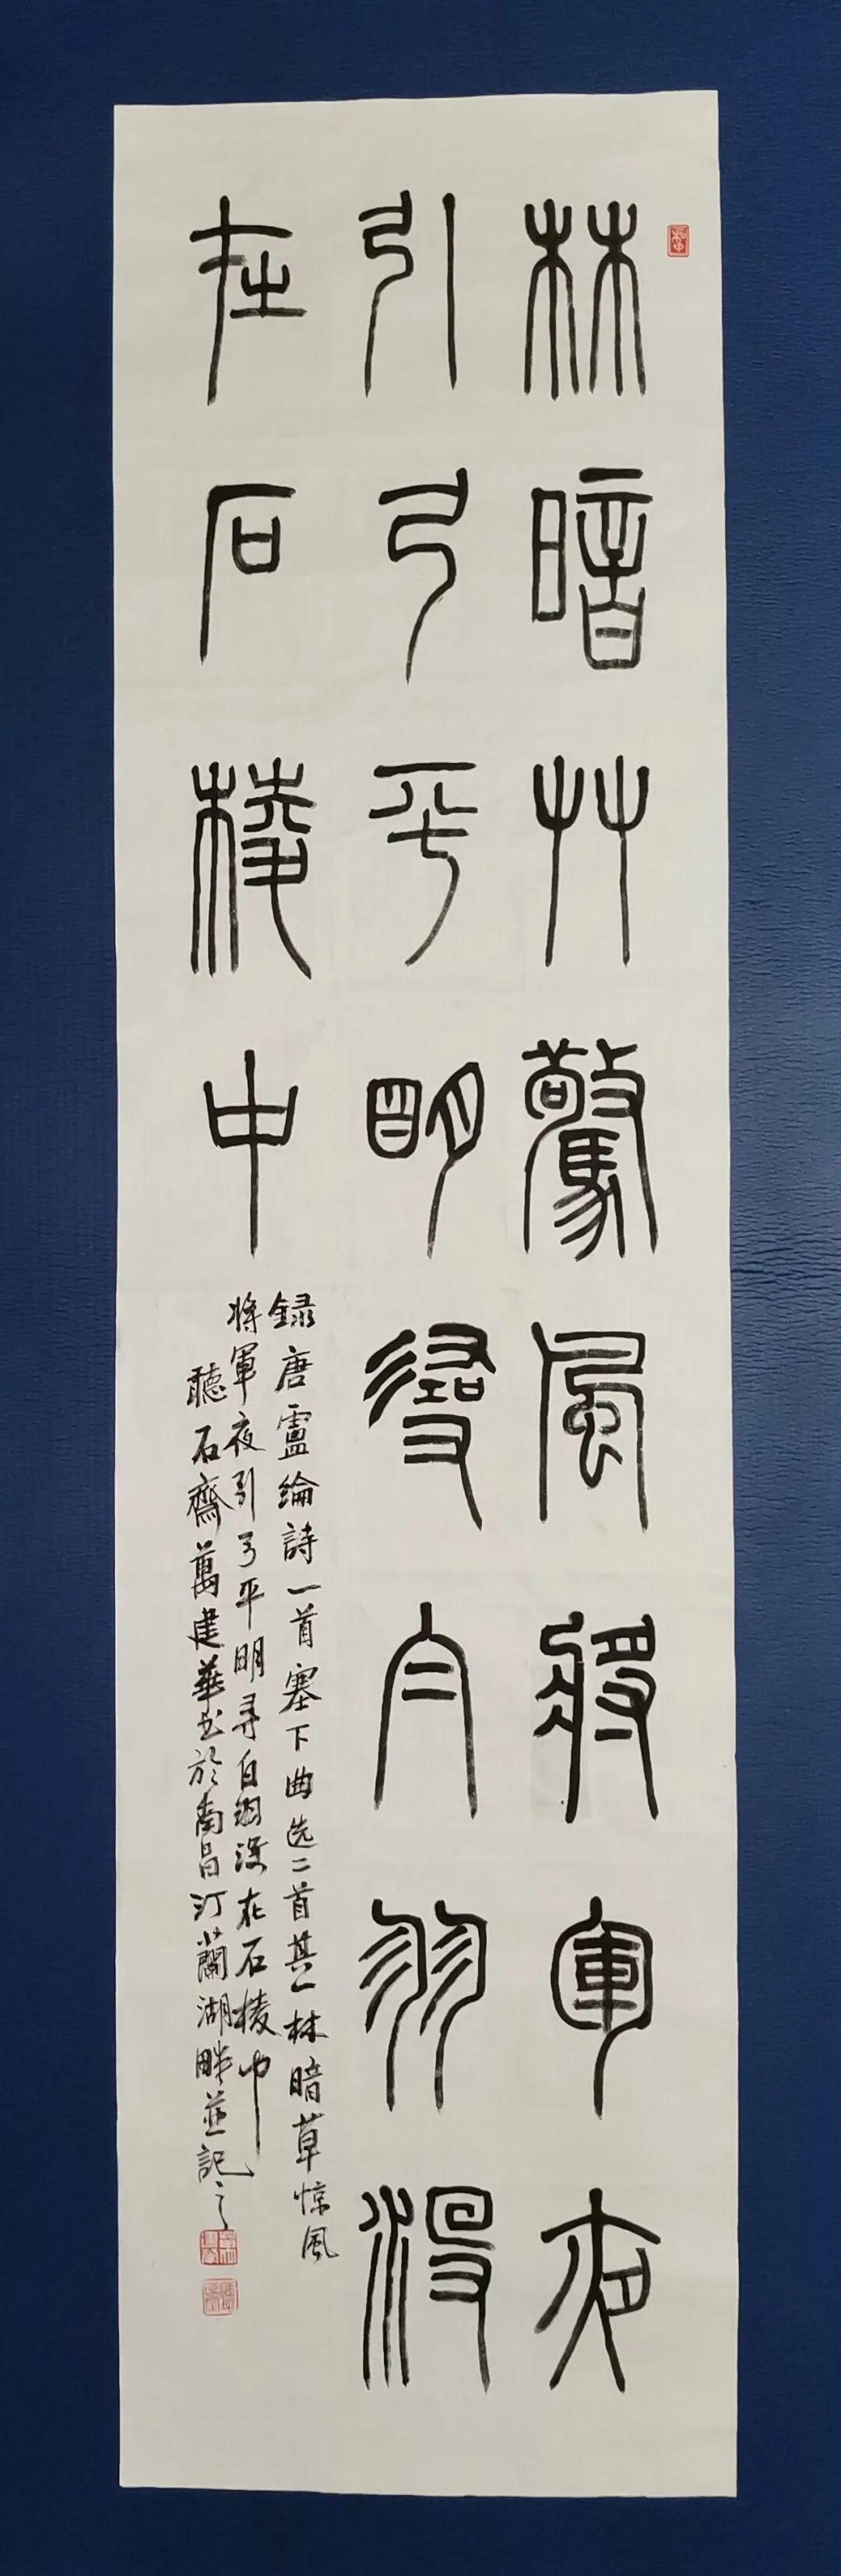 林暗艸驚風將軍夜
引弓平明尋白羽沒
在石棱中
録唐盧綸詩一首塞下曲选二首其一林暗草惊風
將軍夜引弓平明寻白羽没在石棱中
聽石齋萬建華书於南昌汀蘭湖畔並記之